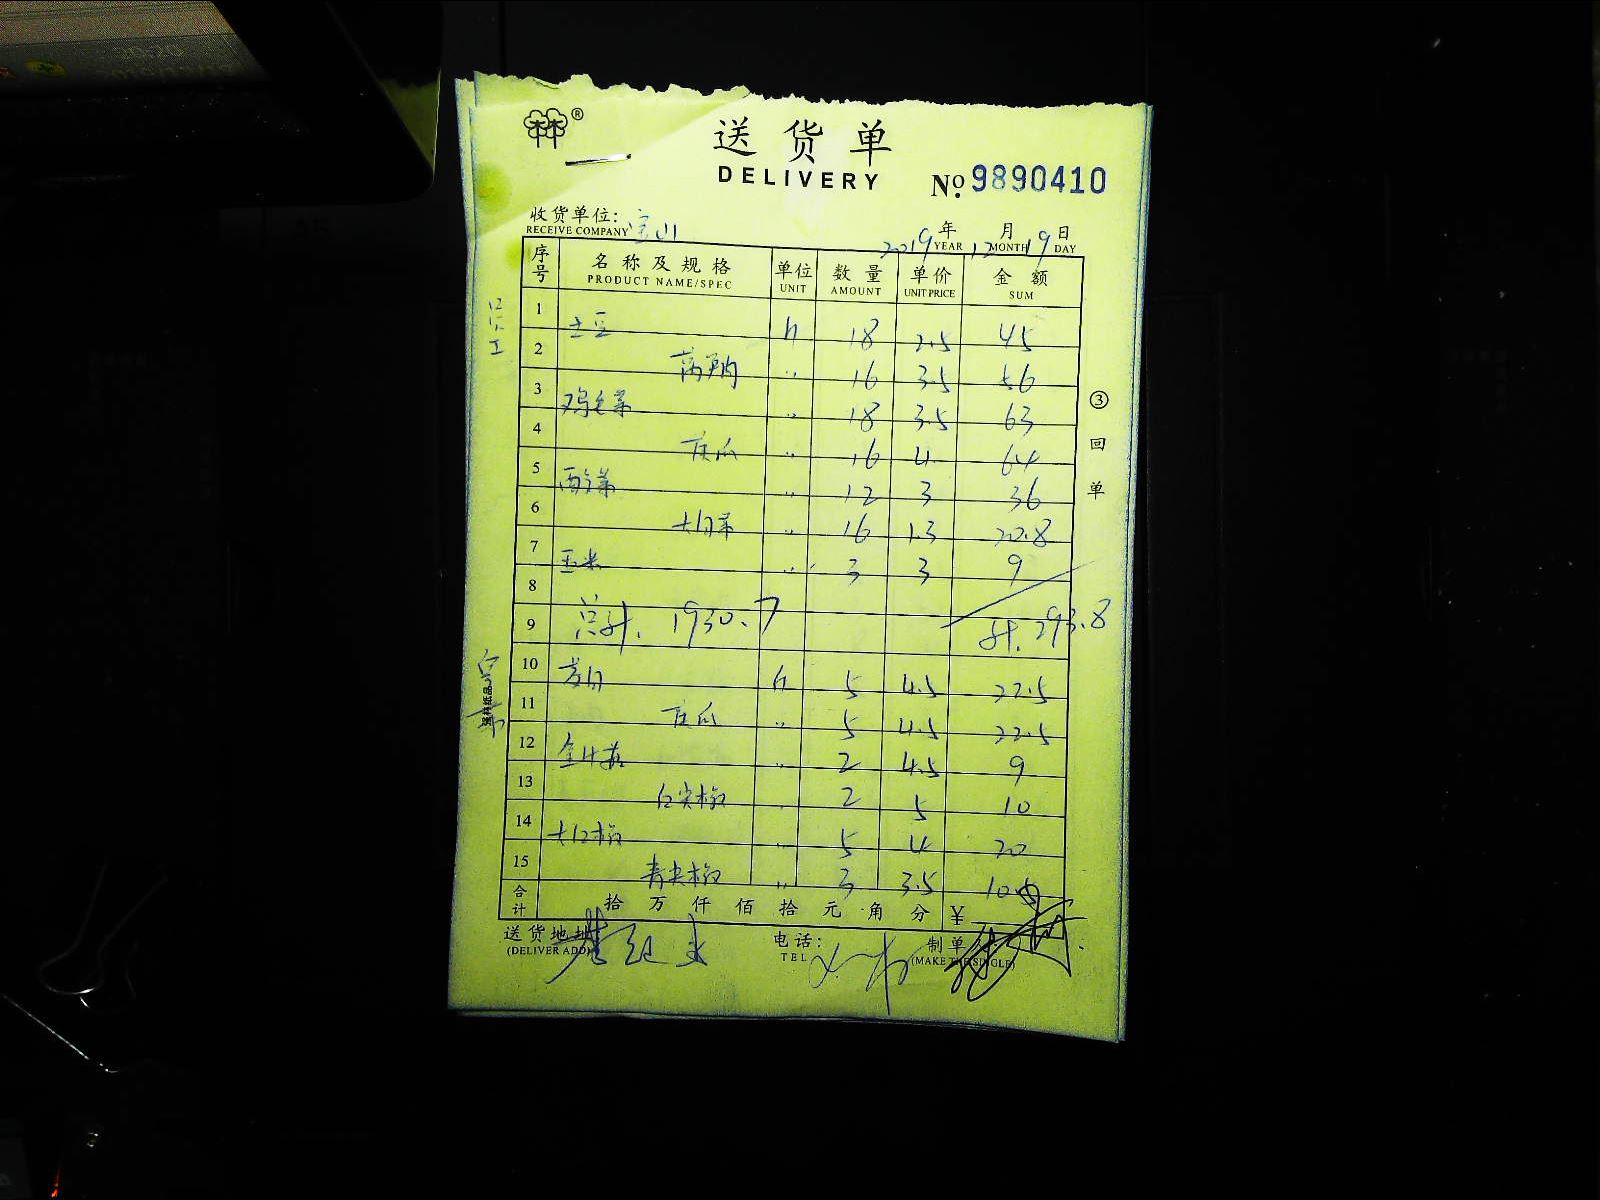 送货单
DELIVERY
No. 9890410
收货单位: 宝山
RECEIVE COMPANY
2019 年 12 月 19 日
YEAR MONTH DAY
序号 名称及规格 单位 数量 单价 金额
PRODUCT NAME/SPEC UNIT AMOUNT UNIT PRICE SUM
1 土豆 斤 18 2.5 45
2 〃 16 3.5 56
3 鸡毛菜 〃 18 3.5 63
4 瓜 〃 16 4 64
5 菜 〃 12 3 36
6 大白菜 〃 16 1.3 20.8
7 玉米 〃 3 3 9
8
9 总计. 1930.7 计. 293.8
10 斤 5 4.5 22.5
11 瓜 〃 5 4.5 22.5
12 金针菇 〃 2 4.5 9
13 白尖椒 〃 2 5 10
14 大红椒 〃 5 4 20
15 青尖椒 〃 3 3.5 10.5
合计 拾 万 仟 佰 拾 元 角 分 ¥
送货地址
(DELIVER ADD)
电话:
TEL
制单
(MAKE THE SINGLE)
③回单
®